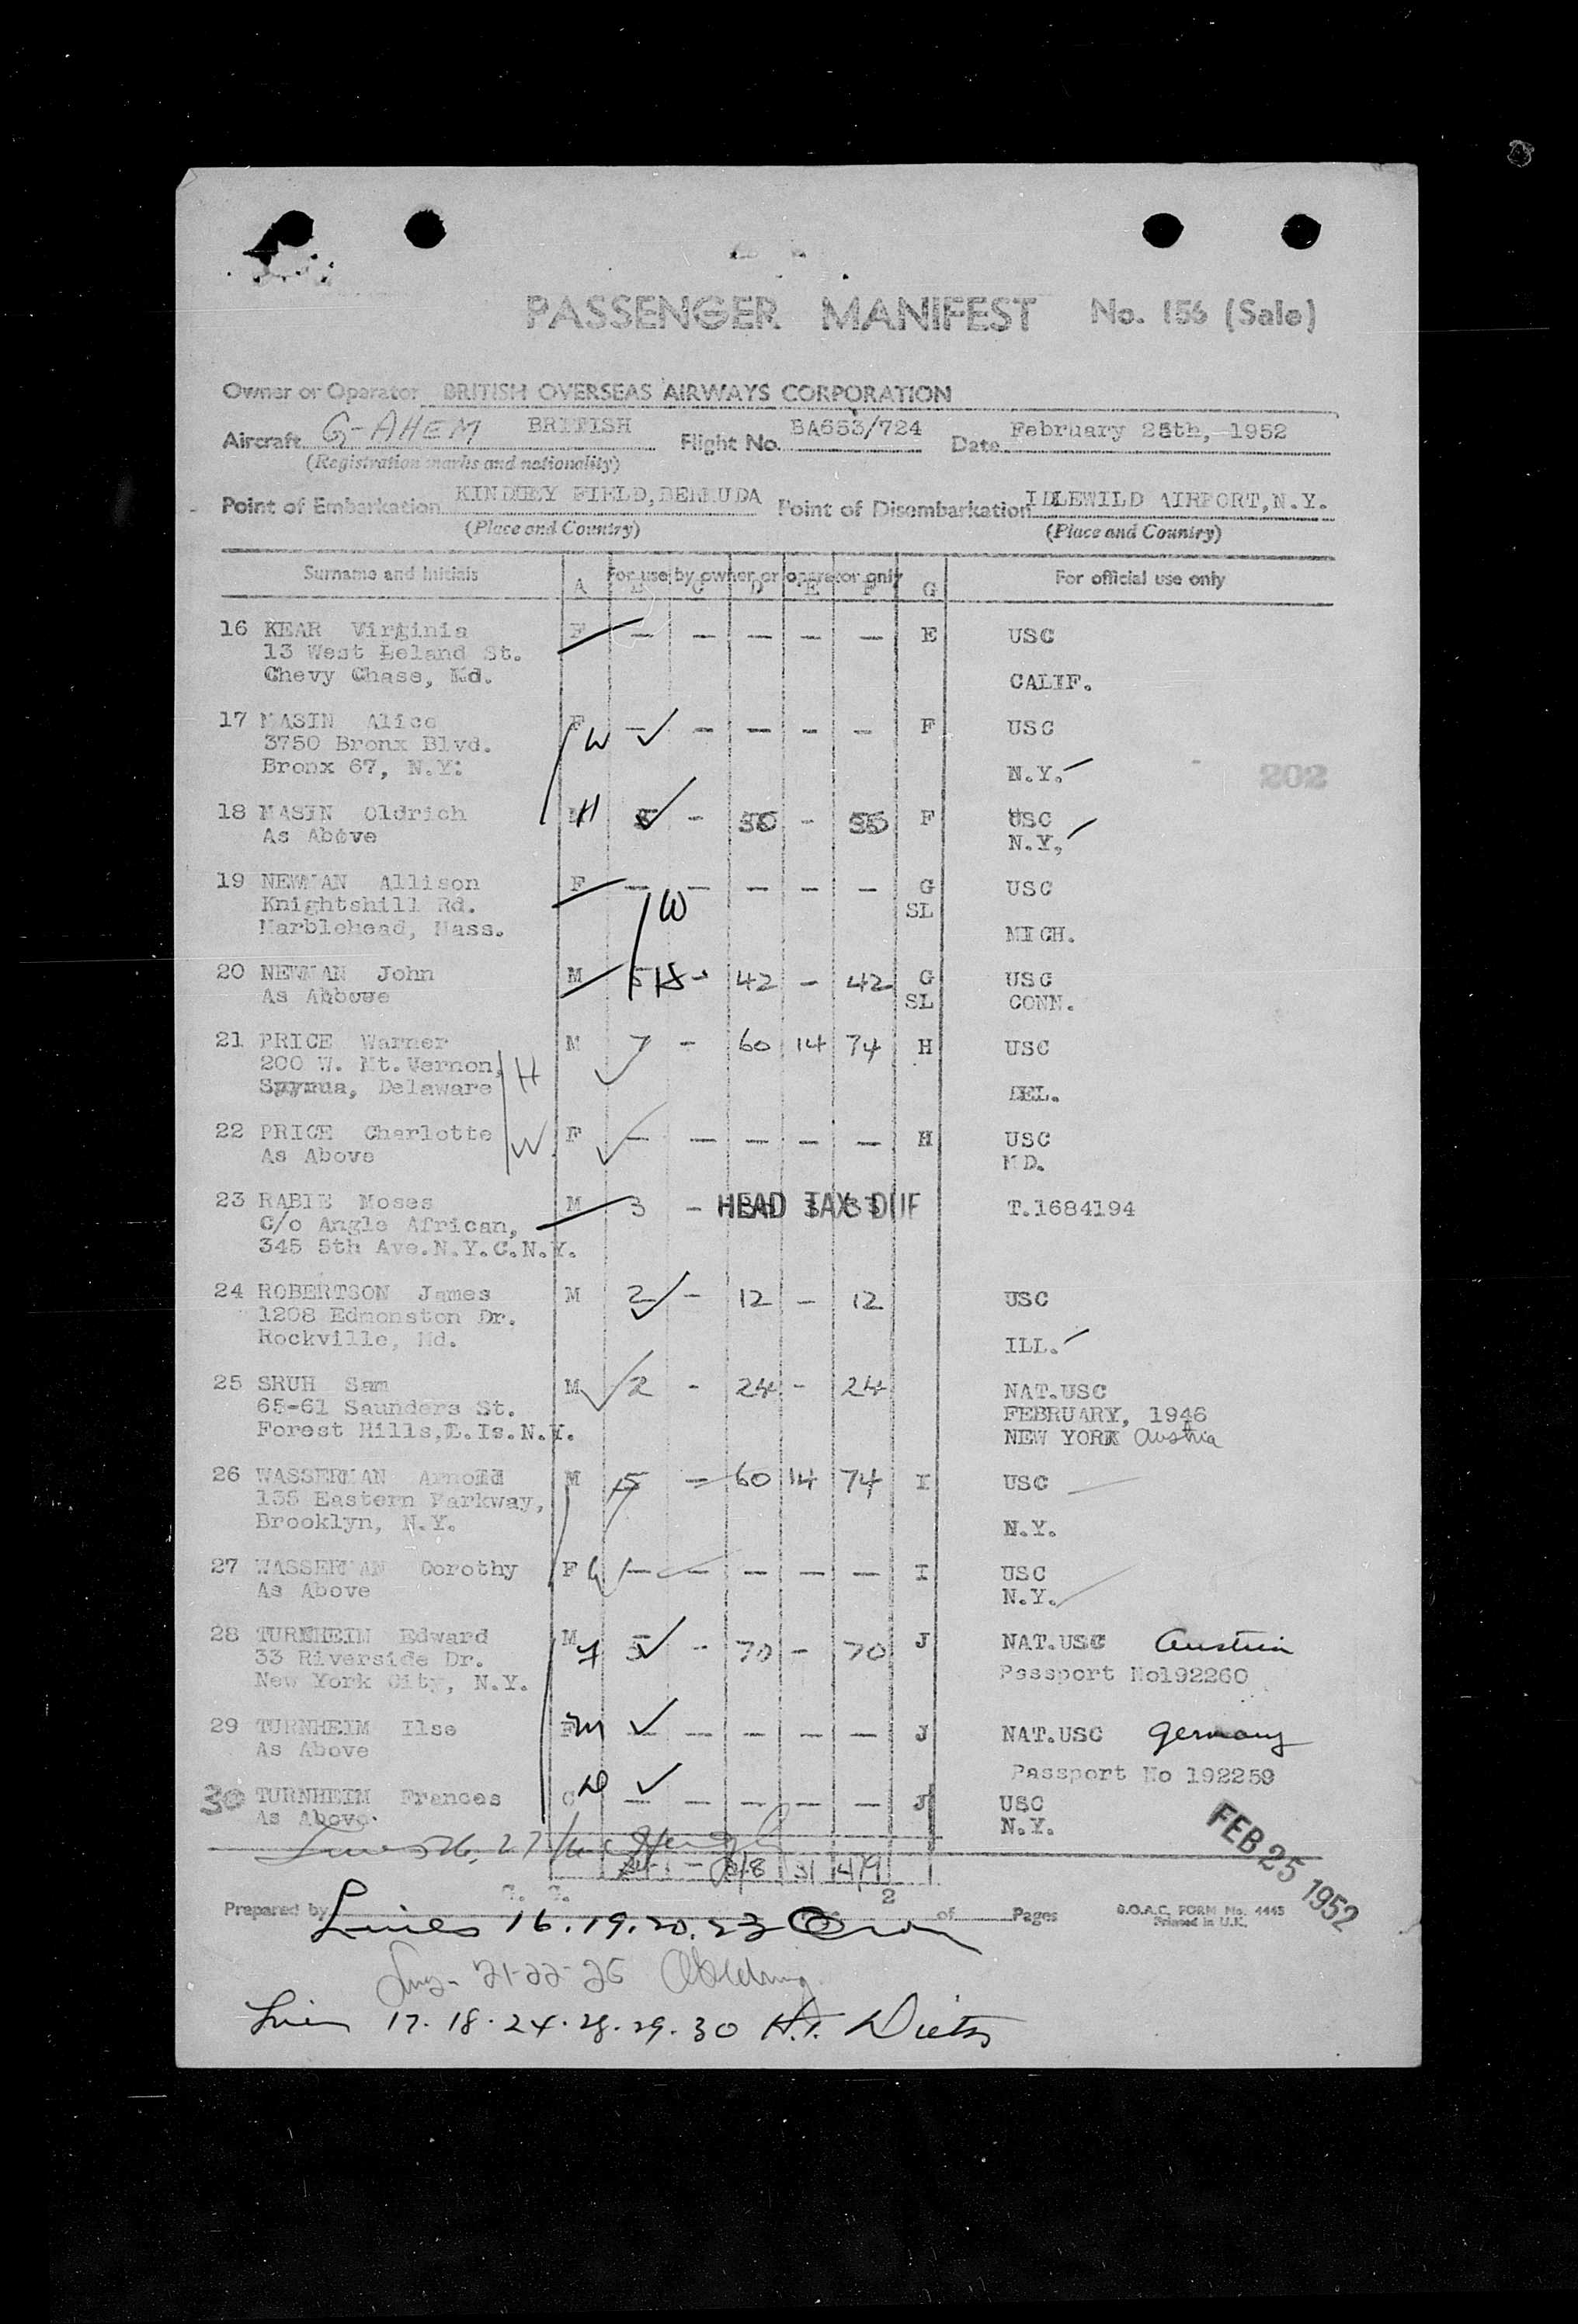 PASSENGER MANIFEST No. 156 (Sale)
Owner or Operator BRITISH OVERSEAS AIRWAYS CORPORATION
Aircraft G-AHEM BRITISH Flight No. BA653/724 Date February 25th, 1952
(Registration marks and nationality)
Point of Embarkation KINDLEY FIELD, BERMUDA Point of Disembarkation IDLEWILD AIRPORT, N.Y.
(Place and Country) (Place and Country)
Surname and Initials For use by owner or operator only For official use only
A B C D E F G
16 KEAR Virginia F — — — — — E USC
13 West Leland St.
Chevy Chase, Md. CALIF.
17 MASIN Alice F W — ✓ — — — — F USC
3750 Bronx Blvd.
Bronx 67, N.Y. N.Y. ✓ 202
18 MASIN Oldrich H ✓ - - F USC
As Above N.Y. ✓
19 NEWMAN Allison F — — — — — G USC
Knightshill Rd. W SL
Marblehead, Mass. MICH.
20 NEWMAN John M 5 - 42 - 42 G USC
As Above SL CONN.
21 PRICE Warner M 7 - 60 14 74 H USC
200 W. Mt. Vernon, H ✓
Delaware DEL.
22 PRICE Charlotte W F ✓ — — — — — H USC
As Above MD.
23 RABIE Moses M 3 - HEAD TAX DUE T.1684194
C/o Angle African,
345 5th Ave.N.Y.C.N.Y.
24 ROBERTSON James M 2 ✓ - 12 - 12 USC
1208 Edmonston Dr.
Rockville, Md. ILL. ✓
25 SRUH Sam M ✓ 2 - 24 - 24 NAT.USC
65-61 Saunders St. FEBRUARY, 1946
Forest Hills,L.Is.N.Y. NEW YORK Austria
26 WASSERMAN Arnold M 5 - 60 14 74 I USC
135 Eastern Parkway,
Brooklyn, N.Y. N.Y.
27 WASSERMAN Dorothy F — — — — — I USC
As Above N.Y.
28 TURNHEIM Edward M 5 ✓ - 70 - 70 J NAT.USC Austria
33 Riverside Dr. Passport No192260
New York City, N.Y.
29 TURNHEIM Ilse F M ✓ — — — — — J NAT.USC Germany
As Above
Passport No 192259
30 TURNHEIM Frances C D ✓ — — — — — J USC
As Above N.Y.
Lines 26, 27
31 479
FEB 25 1952
Prepared by 2 of Pages B.O.A.C. FORM No. 4445
Printed in U.K.
Lines 16.19.20.23
21-22-25
Lines 17.18.24.28.29.30 H.T. Dietz